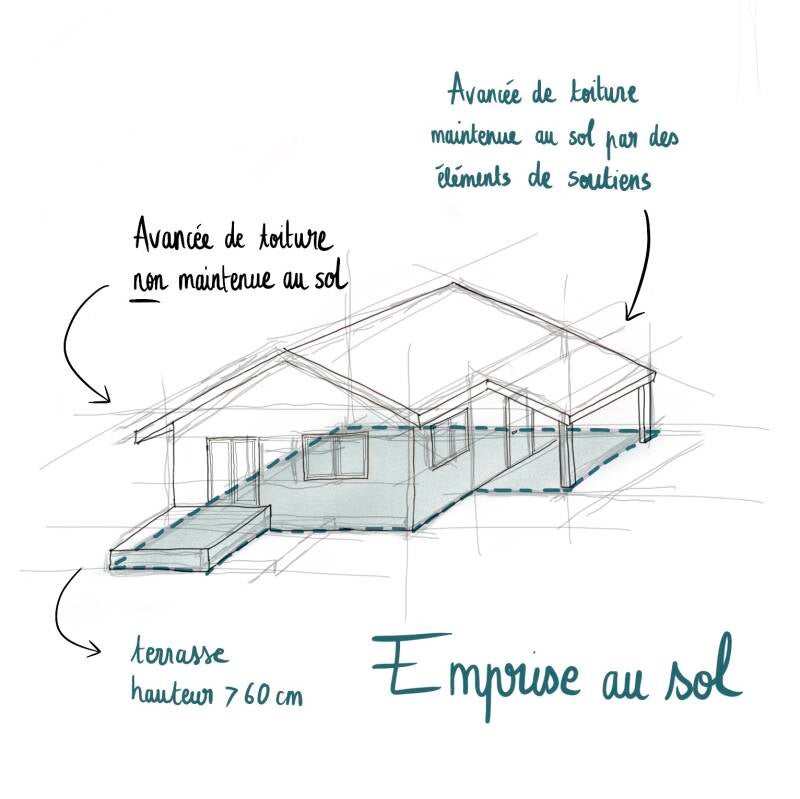 Avancée de toiture
maintenue au sol par des
éléments de soutiens
Avancée de toiture
non maintenue au sol
terrasse
hauteur > 60 cm
Emprise au sol